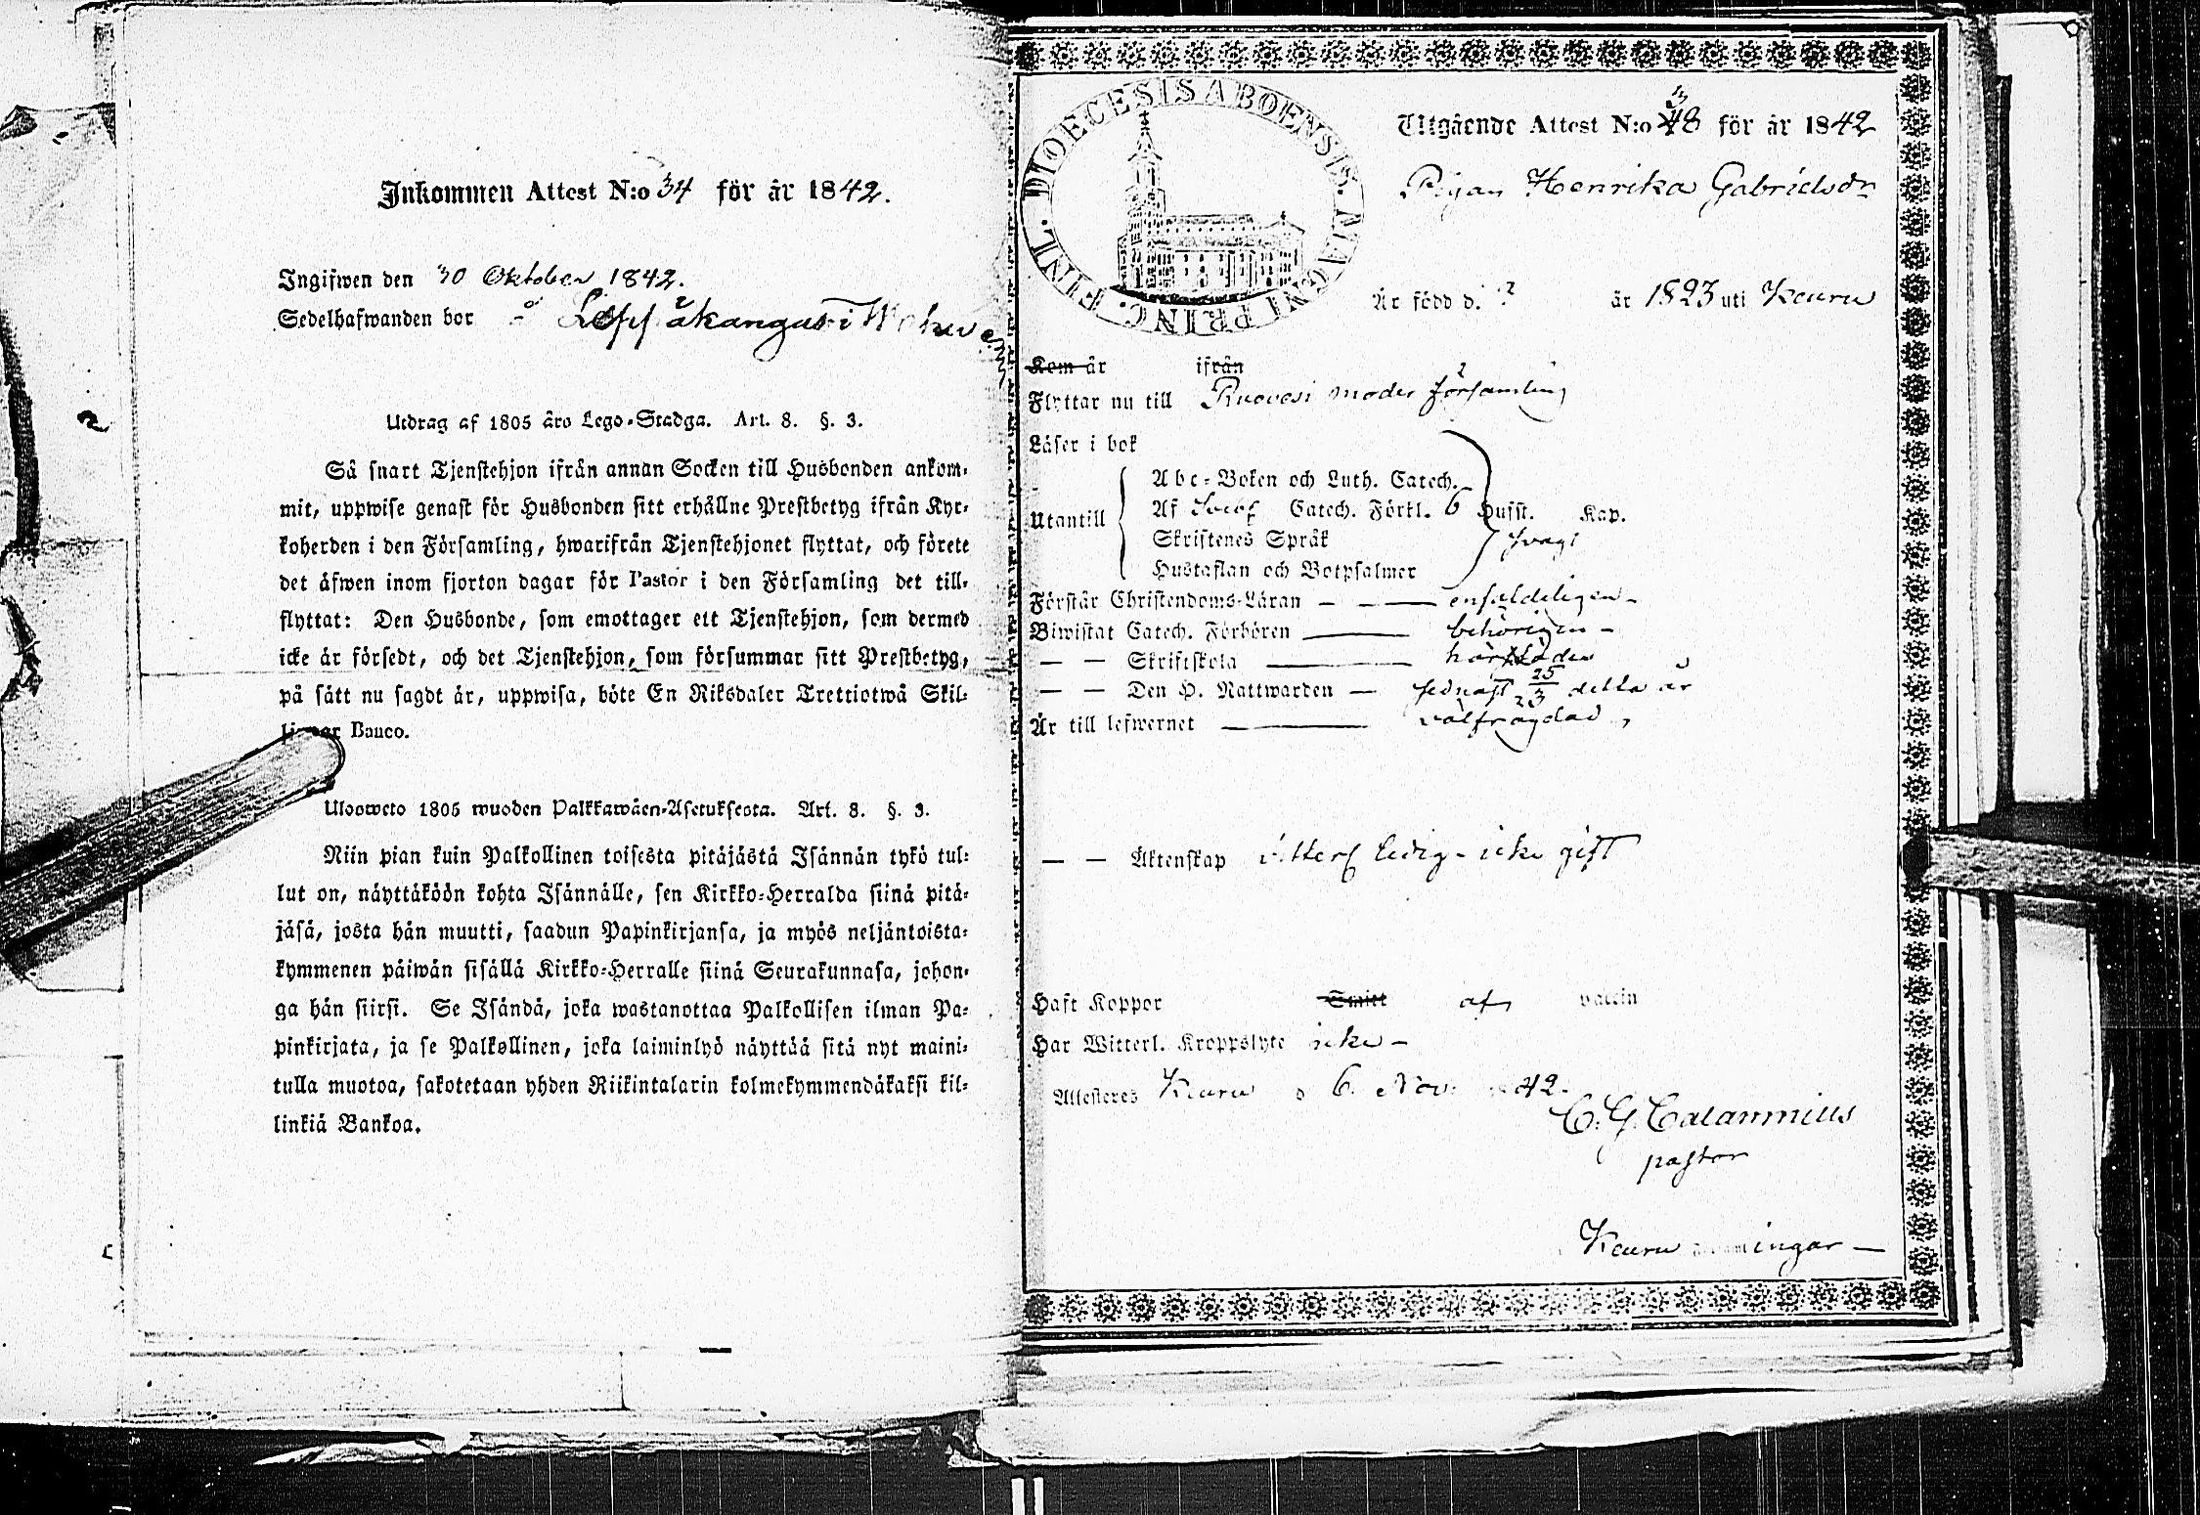 Inkommen Attest N:o 34 för år 1842.
Ingifwen den 30 Oktober 1842.
Sedelhafwanden bor å Leppäkangas i
Utdrag af 1805 års Lego-Stadga. Art. 8. §. 3.
Så snart Tjenstehjon ifrån annan Socken till Husbonden ankom-
mit, uppwise genast för Husbonden sitt erhållne Prestbetyg ifrån Kyr-
koherden i den Församling, hwarifrån Tjenstehjonet flyttat, och förete
det äfwen inom fjorton dagar för Pastor i den Församling det till-
flyttat: Den Husbonde, som emottager ett Tjenstehjon, som dermed
icke är försedt, och det Tjenstehjon, som försummar sitt Prestbetyg,
på sätt nu sagdt är, uppwisa, böte En Riksdaler Trettiotwå Skil-
Banco.
Uloosweto 1805 wuoden Palkkawäen-Asetuksesta. Art. 8. §. 3.
Niin pian kuin Palkollinen toisesta pitäjästä Isännän tykö tul-
lut on, näyttäköön kohta Isännälle, sen Kirkko-Herralda siinä pitä-
jäsä, josta hän muutti, saadun Papinkirjansa, ja myös neljäntoista-
kymmenen päiwän sisällä Kirkko-Herralle siinä Seurakunnasa, johon-
ga hän siirsi. Se Isändä, joka wastanottaa Palkollisen ilman Pa-
pinkirjata, ja se Palkollinen, joka laiminlyö näyttää sitä nyt maini-
tulla muotoa, sakotetaan yhden Riikintalarin kolmekymmendäkaksi kil-
linkiä Bankoa.
FINL. DIOECESIS ABOENSIS. MAGNI PRINC.
Utgående Attest N:o 38 för år 1842
Pigan Henrika Gabrielsdr
Är född d. ? år 1823 uti Keuru
Kom år ifrån
Flyttar nu till Ruovesi moder församling
Läser i bok
Utantill
Abc-Boken och Luth. Catech.
Af Catech. Förkl. 6 Hufst. Kap.
Skriftenes Språk svagt
Hustaflan och Botpsalmer
Förstår Christendoms-Läran - - enfaldeligen -
Biwistat Catech. Förhören behörigen -
— — Skriftskola härstädes
— — Den H. Nattwarden — sednast 25/3 detta år
Är till lefwernet välfrägdad,
— — Äktenskap vitterl. ledig - icke gift
Haft Koppor Smitt af vaccin
Har Witterl. Kroppslyte icke -
Attesteras Keuru d 6. Nov. 42.
C. G. Calamnius
pastor
Keuru